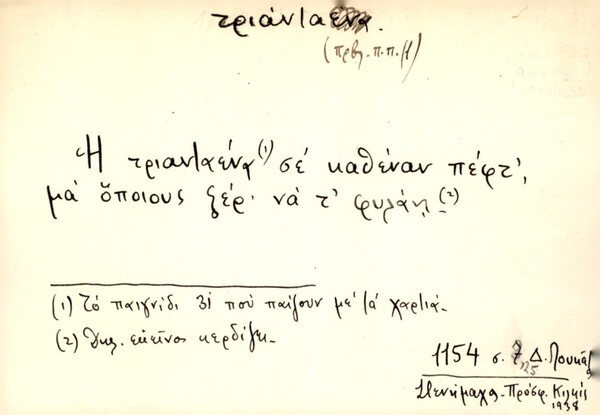 τριάνταένα.
(πρβλ. π.π. (1)
Ἡ τριανταένα(1) σέ καθέναν πέφτ',
μά ὅποιους ξέρ' νά τ' φυλάη.(2)
(1) Τό παιγνίδι 31 πού παίζουν μέ τά χαρτιά.
(2) Δηλ. ἐκεῖνος κερδίζει.
1154 σ. 125 Δ. Λουκᾶ
Στενήμαχο - Πρόσφ. Κιλκίς
1938